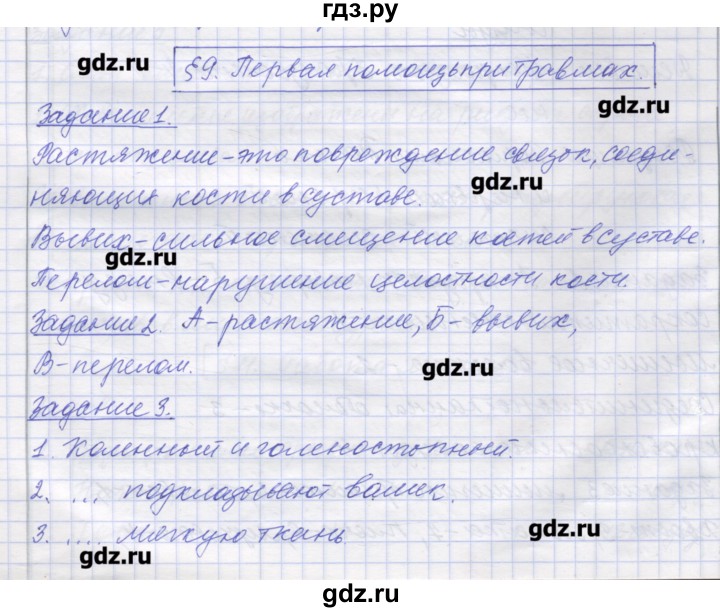 гдз.ру
gdz.ru
§9. Первая помощь при травмах.
gdz.ru
Задание 1.
Растяжение - это повреждение связок, соеди-
gdz.ru
няющих кости в суставе.
Вывих - сильное смещение костей в суставе.
gdz.ru
Перелом - нарушение целостности кости.
Задание 2. А - растяжение, Б - вывих,
В - перелом.
gdz.ru
Задание 3.
1. Коленный и голеностопный.
2. ... подкладывают валик.
3. .... мягкую ткань
gdz.ru
gdz.ru
gdz.ru